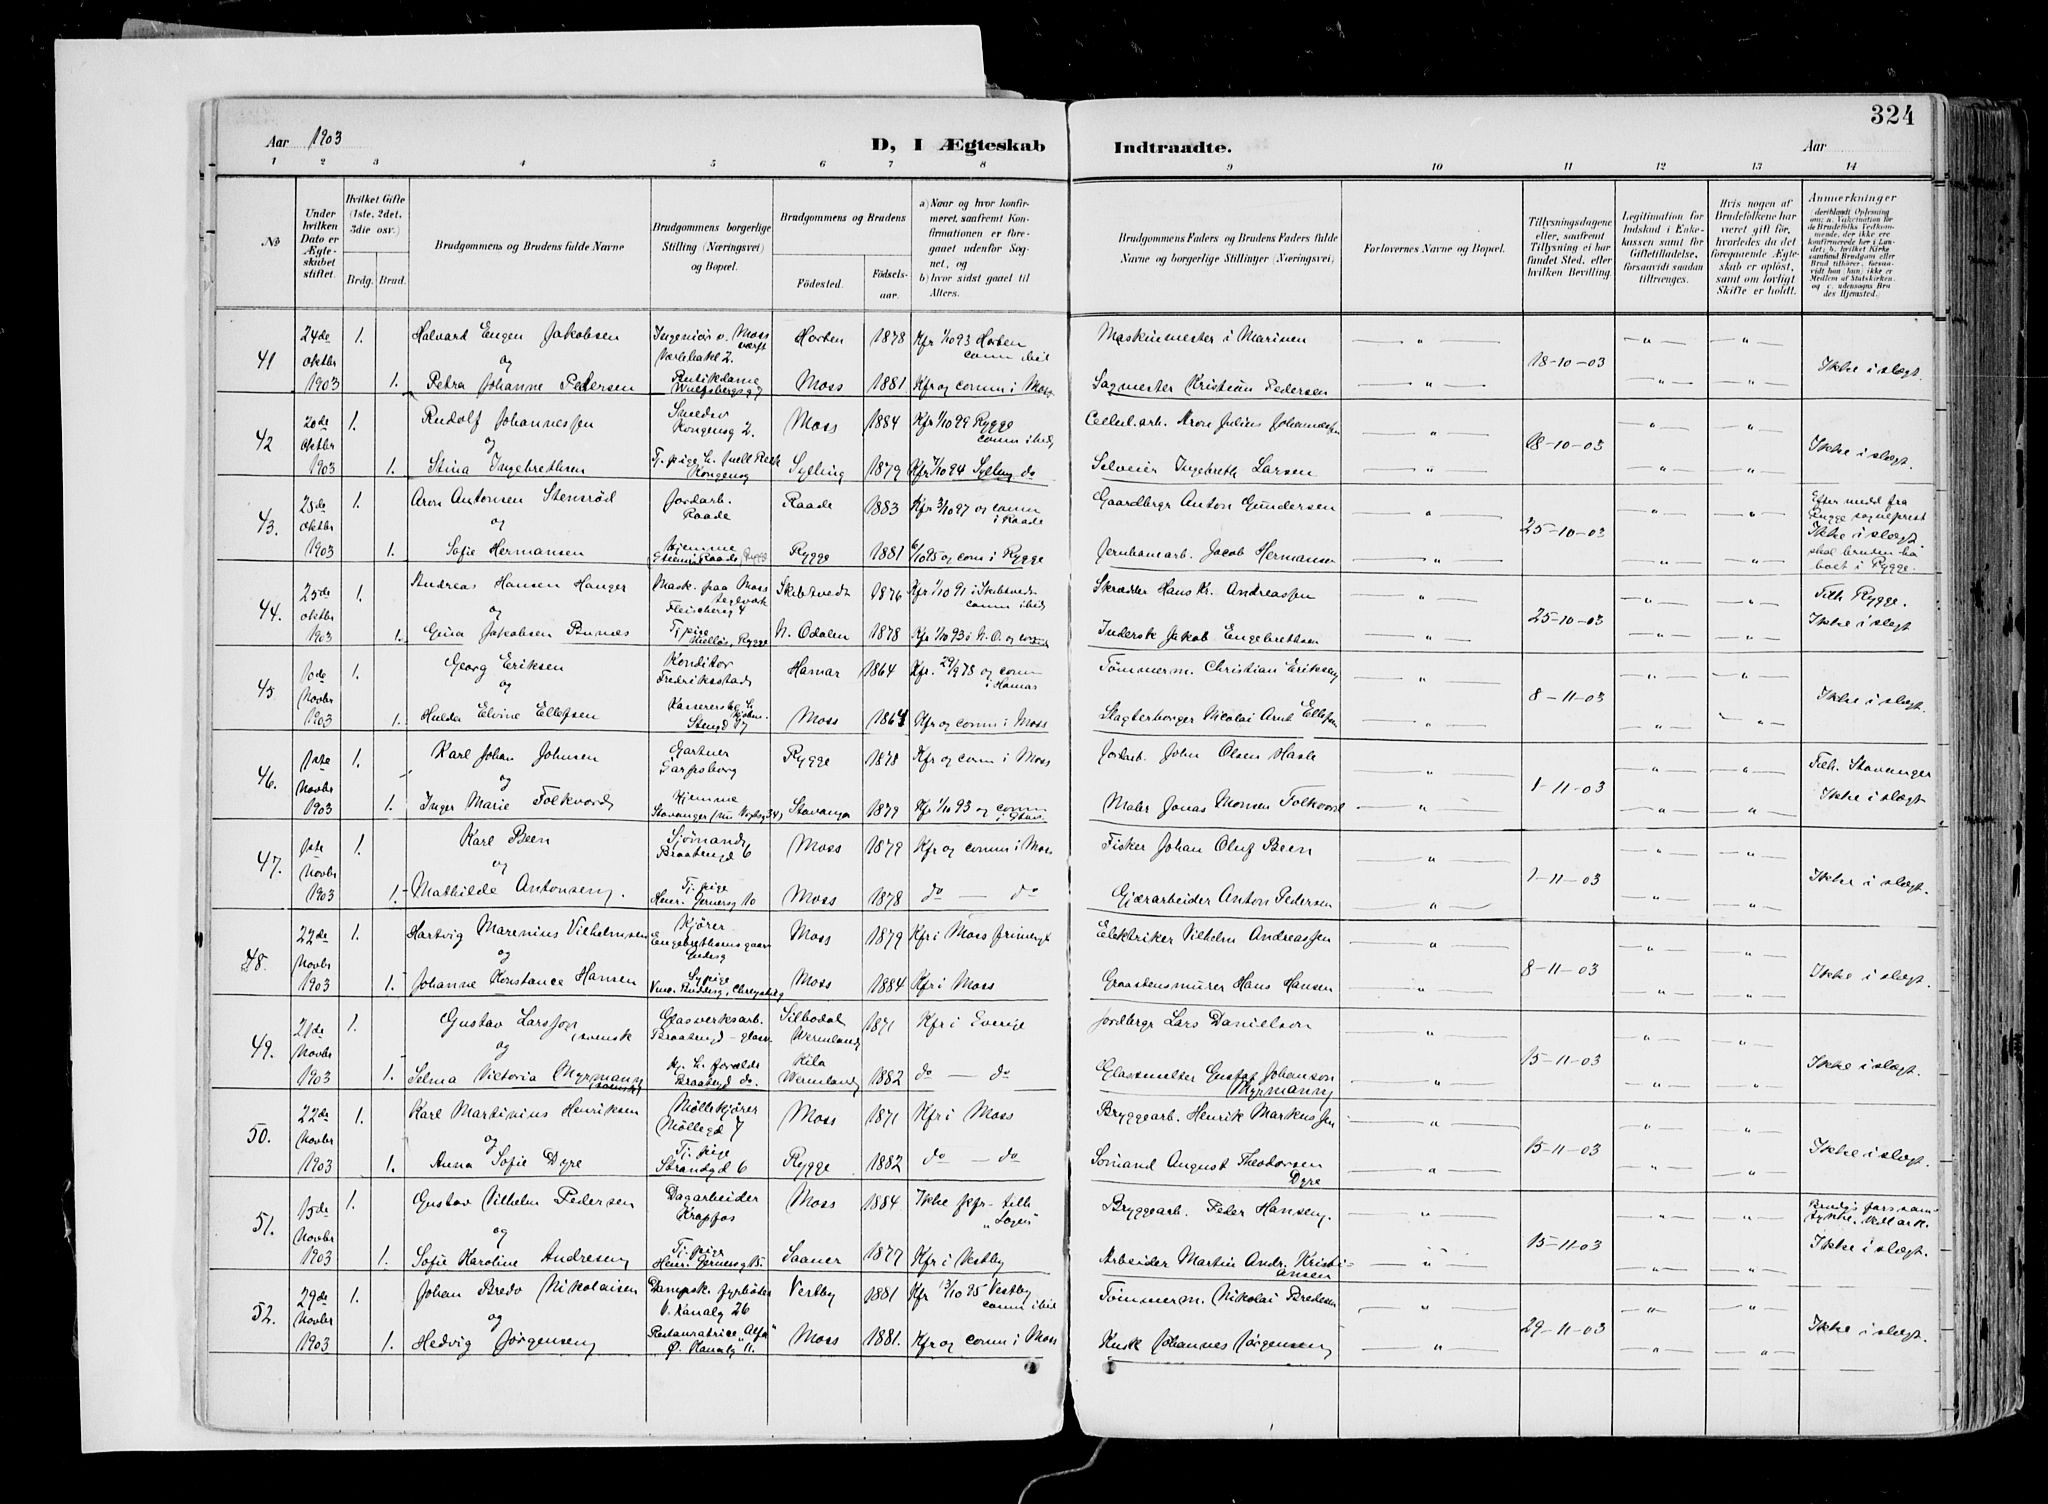 324
Aar 1903
D, I Ægteskab Indtraadte.
Aar
1 2 3 4 5 6 7 8 9 10 11 12 13 14
No
Under hvilken Dato er Ægteskabet stiftet.
Hvilket Gifte (1ste, 2det, 3die osv.)
Brdg. Brud.
Brudgommens og Brudens fulde Navne
Brudgommens borgerlige Stilling (Næringsvei) og Bopæl.
Brudgommens og Brudens
Fødested. Fødselsaar.
a) Naar og hvor konfirmeret, saafremt Konfirmationen er foregaaet udenfor Sognet, og
b) hvor sidst gaaet til Alters.
Brudgommens Faders og Brudens Faders fulde Navne og borgerlige Stillinger (Næringsvei)
Forlovernes Navne og Bopæl.
Tillysningsdagene eller, saafremt Tillysning ei har fundet Sted, efter hvilken Bevilling.
Legitimation for Indskud i Enkekassen samt for Giftetilladelse, forsaavidt saadan tiltrænges.
Hvis nogen af Brudefolkene har været gift før, hvorledes da det foregaaende Ægteskab er opløst, samt om lovligt Skifte er holdt.
Anmerkninger
41 24de oktbr 1903 1. Halvard Engen Jakobsen Ingeniør v. Moss værft Værlehatel 2. Horten 1878 Kfr 1/10 93 Horten comm ibid Maskinmester i Marinen 18-10-03 Ikke i slægt.
og
1. Petra Johanne Pedersen Butikdame Wulfsbergsg 7 Moss 1881 Kfr og comm i Moss Sagmester Kristian Pedersen
42 20de oktbr 1903 1. Rudolf Johannessen Smedsv Kongensg 2. Moss 1884 Kfr 1/10 99 Rygge comm ibid Cellul.arb. Aron Julius Johannessen 18-10-03 Ikke i slægt.
og
1. Stina Ingebrethsen Tj. pige Kongensg Sylling 1879 Kfr 7/10 94 Sylling do Selveier Ingebreth Larsen
43. 28de oktbr 1903 1. Aron Antonsen Stensrød Jordarb. Raade Raade 1883 Kfr 3/10 97 og comm i Raade Gaardbrgr Anton Gundersen 25-10-03 Efter medd fra Rygge sogneprest Ikke i slægt skal bruden ha boet i Rygge.
og
1. Sofie Hermansen Hjemme Raade Rygge 1881 og com i Rygge Jernbanearb. Jacob Hermansen
44. 25de oktbr 1903 1. Andreas Hansen Hanger Mask. paa Moss teglværk Skibtvedt 1876 Kfr 1/10 91 i Skibtvedt comm ibid Skrædder Hans Kr. Andreassen 25-10-03 Tilh Rygge. Ikke i slægt
og
1. Gina Jakobsen Tj. pige Rygge N. Odalen 1878 Kfr 1/10 93 i N. O. og comm Inderst Jakob Engebrethsen
45. 10de Novbr 1903 1. Georg Eriksen Konditor Fredriksstad Hamar 1864 Kfr. 29/9 78 og comm i Hamar Tømmerm. Christian Eriksen 8-11-03 Ikke i slægt.
og
1. Hulda Elvine Ellefsen Moss 1864 Kfr og comm i Moss Slagterborger Nicolai Arnt Ellefsen
46. 1ste Novbr 1903 1. Karl Johan Johnsen Gartner Sarpsborg Rygge 1878 Kfr og comm i Moss Jordarb. John Olsen Hasle 1-11-03 Tilh. Stavanger Ikke i slægt
og
1. Inger Marie Folkvord Hjemme Stavanger Stavanger 1879 Kfr 1/10 93 og comm Maler Jonas Monsen Folkvord
47. 1ste Novbr 1903 1. Karl Been Sjømand Braatengd 6 Moss 1879 Kfr og comm i Moss Fisker Johan Oluf Been 1-11-03 Ikke i slægt.
og
1. Mathilde Antonsen. Tj. pige Henr. Gernersg 10 Moss 1878 do — do Gjærarbeider Anton Pedersen
48. 22de Novbr 1903 1. Hartvig Marenius Vilhelmsen Kjører Engebrethsensgaarn Moss 1879 Kfr i Moss Elektriker Vilhelm Andreassen 8-11-03 Ikke i slægt.
og
1. Johanne Konstance Hansen Sypige Moss 1884 Kfr i Moss Graastensmurer Hans Hansen
49. 21de Novbr 1903 1. Gustav Larsson, svensk Glasverksarb. Braatengd Silbodal Wermland 1871 Kfr i Sverige Jordbrgr Lars Danielson 15-11-03 Ikke i slægt.
og
1. Selma Victoria Myrmann (svensk) Hj. h. forældr Braatengd do. Kila Wermland 1882 do — do Glassmelter Gustaf Johanson Myrmann
50. 22de Novbr 1903 1. Karl Martinius Henriksen Møllekjører Møllegd 7 Moss 1871 Kfr i Moss Bryggearb. Henrik Markussen 15-11-03 Ikke i slægt.
og
1. Anna Sofie Dyre Tj. pige Strandgd 6 Rygge 1882 do — do Sømand August Theodorsen Dyre
51. 15de Novbr 1903 1. Gustav Vilhelm Pedersen Dagarbeider Krapfos Moss 1884 Ikke kfr- tilh "Logen" Bryggearb. Peder Hansen. 15-11-03 Brudgs fars samtykke. Ikke i slægt.
og
1. Sofie Karoline Andresen Tj. pige Henr. Gernersg Saaner 1877 Kfr i Vestby Arbeider Martin Andr. Kristiansen
52. 29de Novbr 1903 1. Johan Bredo Nikolaisen Dampsk. fyrbøter V. Kanalg 26 Vestby 1881 Kfr 13/10 95 Vestby comm ibid Tømmerm. Nikolai Bredesen 29-11-03 Ikke i slægt.
og
1. Hedvig Jørgensen Restauratrice "Alfa" Ø. Kanalg 11. Moss 1881. Kfr og comm i Moss Kusk Johannes Jørgensen